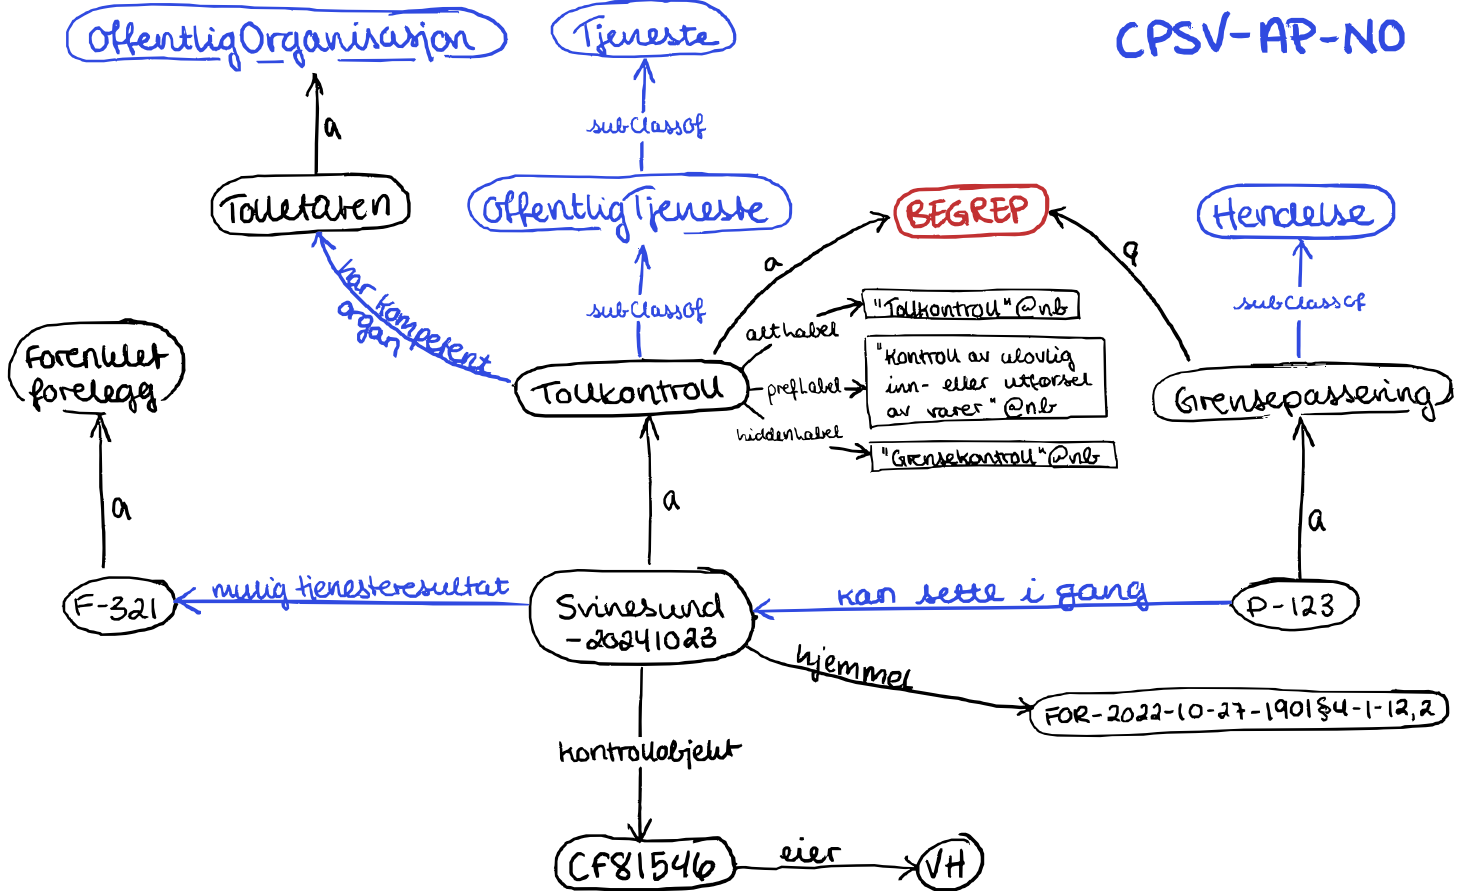 OffentligOrganisasjon
Tjeneste
CPSV-AP-NO
subClassOf
a
Tolletaten
OffentligTjeneste
BEGREP
Hendelse
har kompetent
organ
subClassOf
a
a
subClassOf
altLabel
"Tollkontroll"@nb
Forenklet
forelegg
Tollkontroll
prefLabel
"Kontroll av ulovlig
inn- eller utførsel
av varer"@nb
Grensepassering
hiddenLabel
"Grensekontroll"@nb
a
a
a
F-321
mulig tjenesteresultat
Svinesund
-20241023
kan sette i gang
P-123
hjemmel
FOR-2022-10-27-1901§4-1-12,2
kontrollobjekt
CF81546
eier
VH